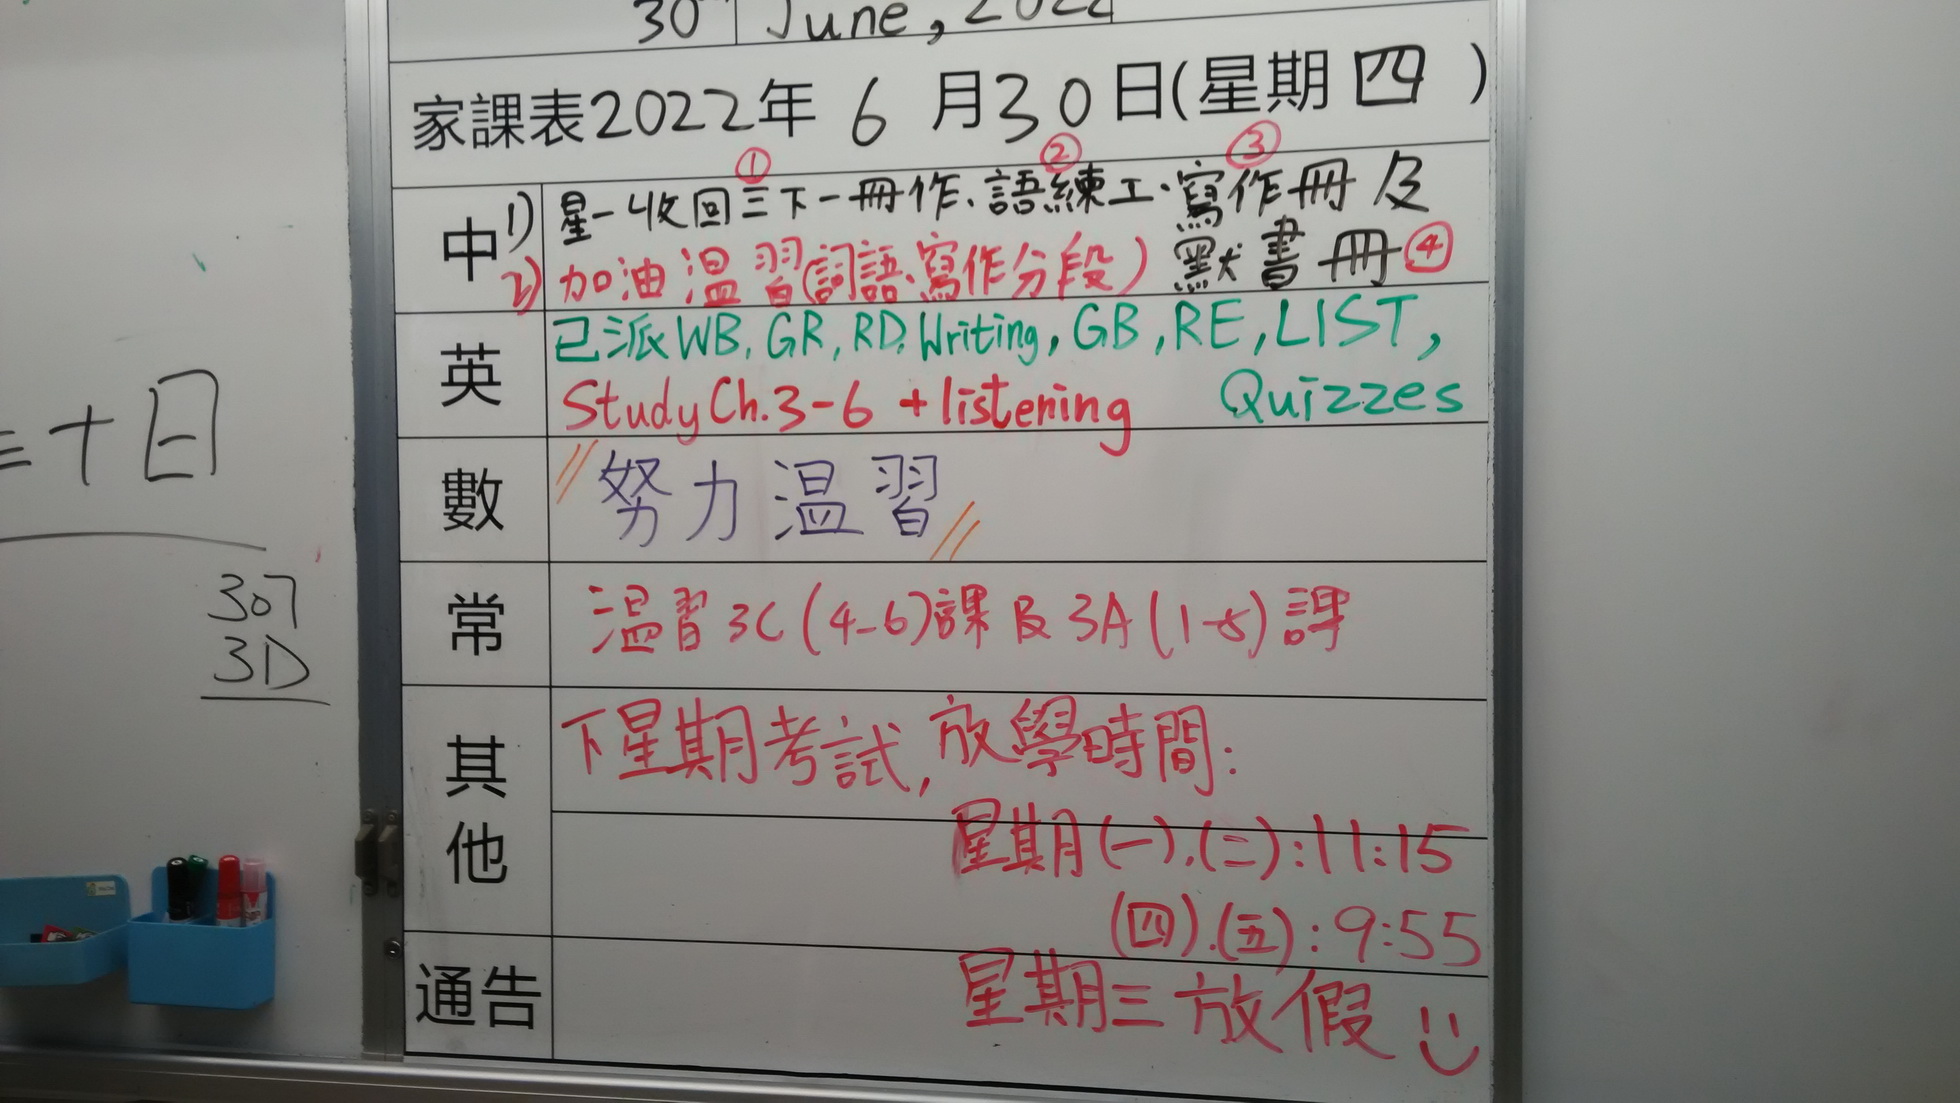 30 June, 2022
家課表2022年 6 月30日(星期 四 )
① ② ③
中 1) 星一收回三下一冊作、語練工、寫作冊及
2) 加油温習(詞語、寫作分段) 默書冊④
英 已派WB, GR, RD, Writing, GB, RE, LIST,
Study Ch.3-6 + listening Quizzes
數 努力温習
常 温習3C(4-6)課及3A(1-5)課
其他 下星期考試,放學時間:
星期(一).(二):11:15
(四).(五):9:55
通告 星期三放假
十日
307
3D